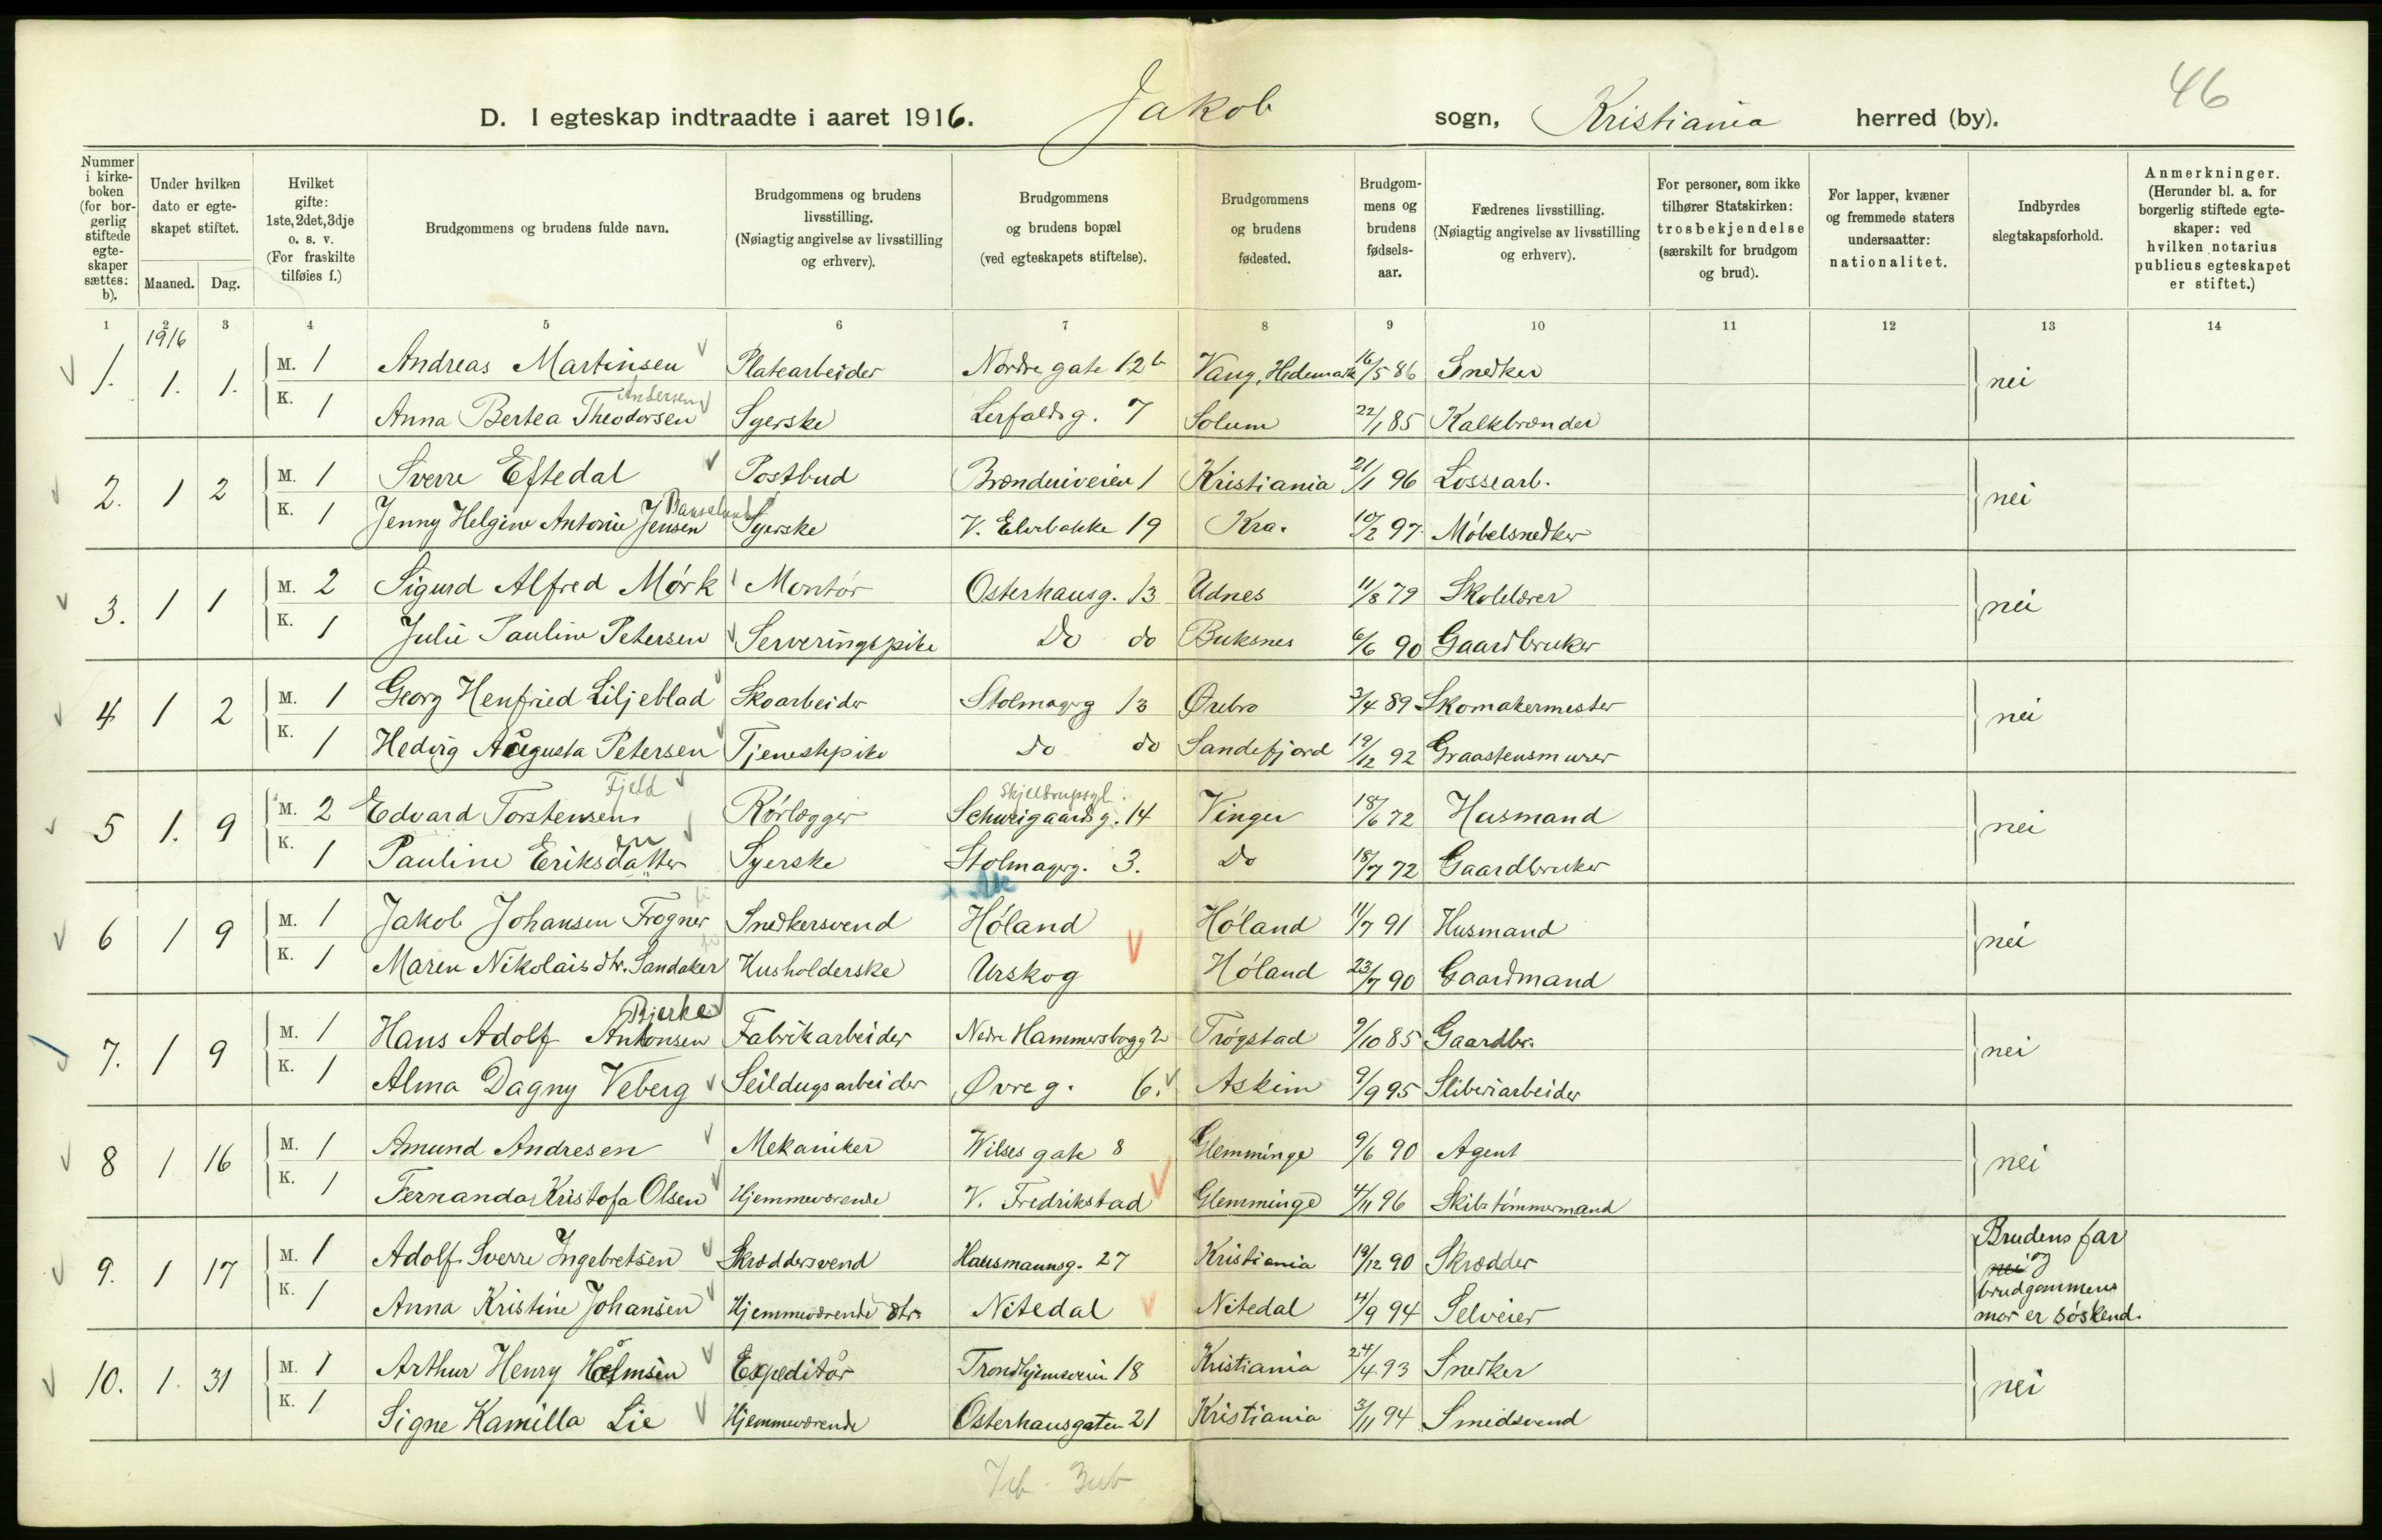 46
D. I egteskap indtraadte i aaret 1916. Jakob sogn, Kristiania herred (by).
Nummer i kirkeboken (for borgerlig stiftede egteskaper sættes: b).
Under hvilken dato er egteskapet stiftet.
Maaned. Dag.
Hvilket gifte: 1ste, 2det, 3dje o. s. v. (For fraskilte tilføies f.)
Brudgommens og brudens fulde navn.
Brudgommens og brudens livsstilling. (Nøiagtig angivelse av livsstilling og erhverv).
Brudgommens og brudens bopæl (ved egteskapets stiftelse).
Brudgommens og brudens fødested.
Brudgommens og brudens fødselsaar.
Fædrenes livsstilling. (Nøiagtig angivelse av livsstilling og erhverv).
For personer, som ikke tilhører Statskirken: trosbekjendelse (særskilt for brudgom og brud).
For lapper, kvæner og fremmede staters undersaatter: nationalitet.
Indbyrdes slegtskapsforhold.
Anmerkninger. (Herunder bl. a. for borgerlig stiftede egteskaper: ved hvilken notarius publicus egteskapet er stiftet.)
1 2 3 4 5 6 7 8 9 10 11 12 13 14
1916
1. 1. 1. M. 1 Andreas Martinsen Platearbeider Nordre gate 12b Vang, Hedemark 16/5 86 Snedker nei
Andersen
K. 1 Anna Bertea Theodorsen Syerske Lerfaldsg. 7 Solum 22/1 85 Kalkbrænder
2. 1 2 M. 1 Sverre Eftedal Postbud Brænderiveien 1 Kristiania 21/1 96 Lossearb. nei
K. 1 Jenny Helgine Antonie Jensen Syerske V. Elvebakke 19 Kra. 10/2 97 Møbelsnedker
3. 1 1 M. 2 Sigurd Alfred Mørk Montør Osterhausg. 13 Udnes 11/8 79 Skolelærer nei
K. 1 Julie Pauline Petersen Serveringspike Do do Buksnes 6/6 90 Gaardbruker
4 1 2 M. 1 Georg Henfried Liljeblad Skoarbeider Stolmagerg 13 Ørebro 3/4 89 Skomakermester nei
K. 1 Hedvig Augusta Petersen Tjenestepike do do Sandefjord 19/12 92 Graastensmurer
Fjeld Skjeldrupsgt.
5 1. 9 M. 2 Edvard Torstensen Rørlægger Schweigaardsg. 14 Vinger 18/6 72 Husmand nei
K. 1 Pauline Eriksdatter Syerske Stolmagerg. 3. Do 18/7 72 Gaardbruker
6 1 9 M. 1 Jakob Johansen Frogner Snedkersvend Høland Høland 11/7 91 Husmand nei
K. 1 Maren Nikolaisdtr. Sandaker Husholderske Urskog Høland 23/7 90 Gaardmand
Bjerke
7. 1 9 M. 1 Hans Adolf Antonsen Fabrikarbeider Nedre Hammersborgg 2 Trøgstad 9/10 85 Gaardbr. nei
K. 1 Alma Dagny Veberg Seildugsarbeider Øvre g. 6. Askim 9/9 95 Sliberiarbeider
8 1 16 M. 1 Amund Andresen Mekaniker Wilses gate 8 Glemminge 9/6 90 Agent nei
K. 1 Fernanda Kristofa Olsen Hjemmeværende V. Fredrikstad Glemminge 4/11 96 Skibstømmermand
9. 1 17 M. 1 Adolf Sverre Ingebretsen Skræddersvend Hausmannsg. 27 Kristiania 19/12 90 Skrædder Brudens far
nei og
K. 1 Anna Kristine Johansen Hjemmeværende dtr. Nitedal Nitedal 4/9 94 Selveier brudgommens
mor er søskend.
10. 1. 31 M. 1 Arthur Henry Holmsen Expeditør Trondhjemsveien 18 Kristiania 24/4 93 Snedker nei
K. 1 Signe Kamilla Lie Hjemmeværende Osterhausgaten 21 Kristiania 3/11 94 Smedsvend